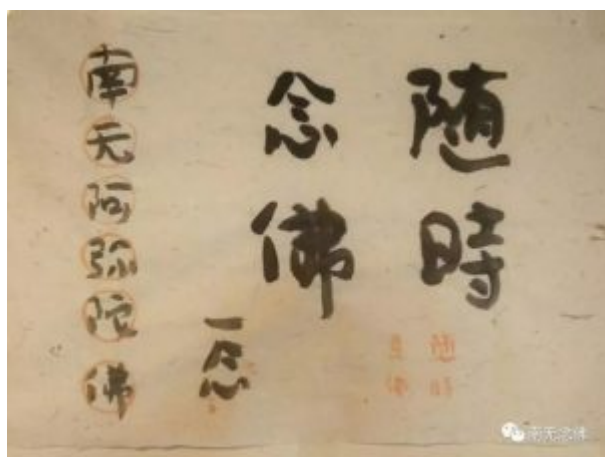 随時
念佛
一念
南无阿弥陀佛
南无念佛